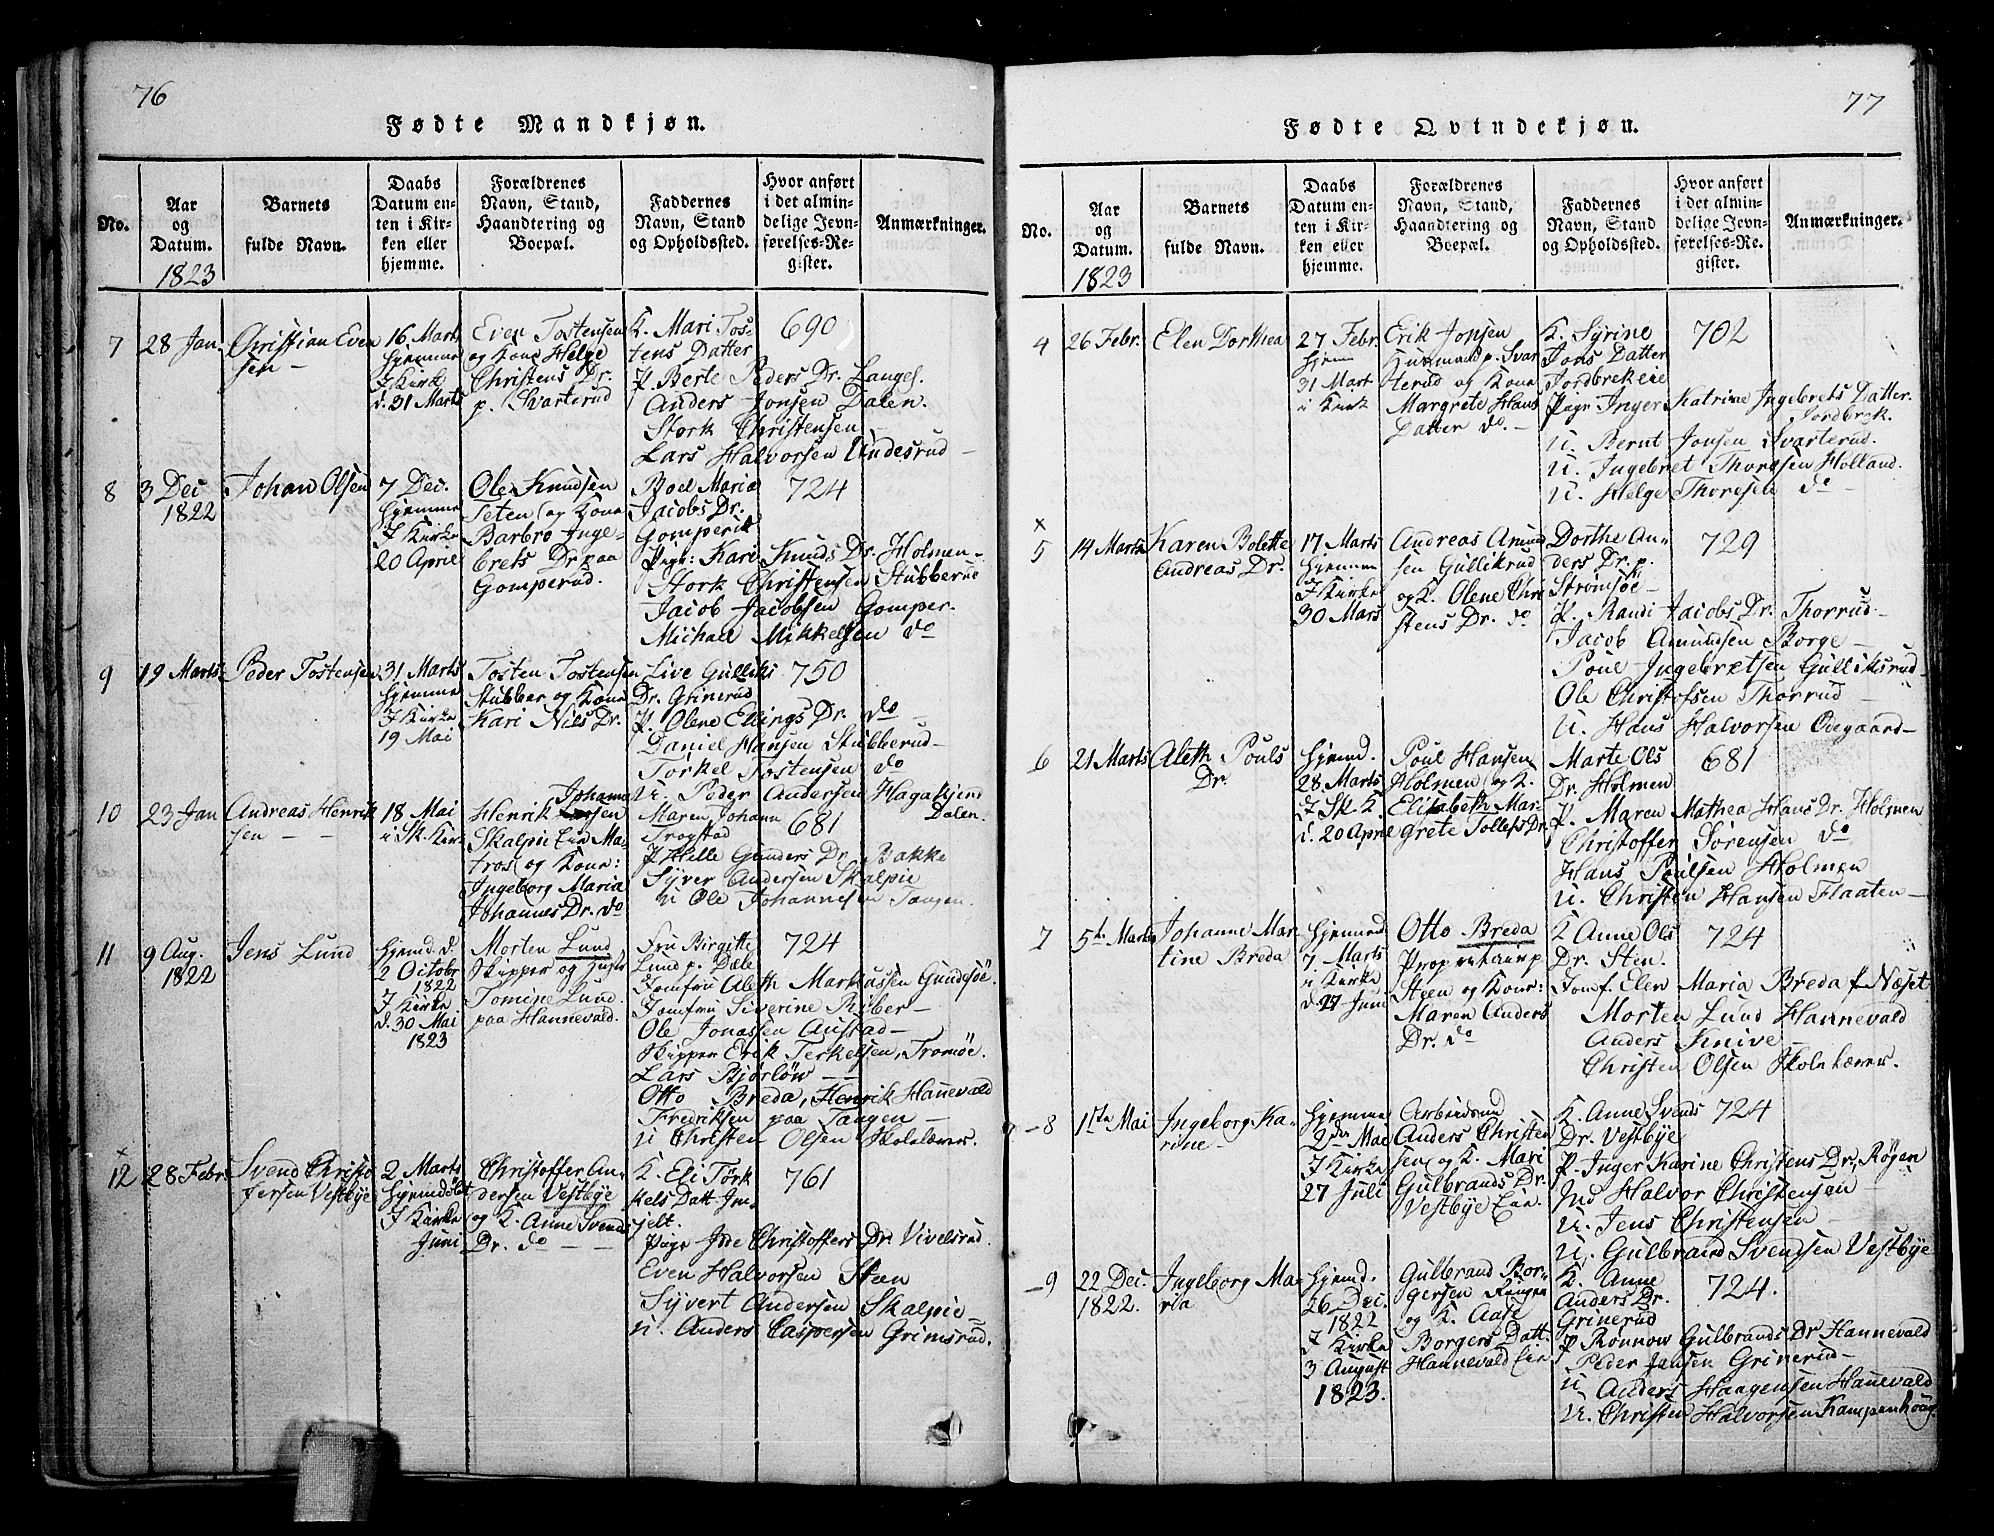 76
Fødte Mandkjøn.
No.
Aar
og
Datum.
1823
Barnets
fulde Navn.
Daabs
Datum en-
ten i Kir-
ken eller
hjemme.
Forældrenes
Navn, Stand,
Haandtering og
Boepæl.
Faddernes
Navn, Stand
og Opholdssted.
Hvor anført
i det almin-
delige Jevn-
førelses-Re-
gister.
Anmærkninger.
7
28 Jan.
Christian Even
sen –
16 Marts
hjemme
I Kirk
d. 31 Marts
Even Tostensen
og Kone Helge
Christens Dr.
p. Svarterud
K. Mari Tos-
tens Datter
P. Berte Peders Dr. Langes.
Anders Jonsen Dalen.
Stork Christensen –
Lars Halvorsen Undesrud –
690
8
3 Dec
1822
Johan Olsen
7 Dec.
hjemme
I Kirke
20 April
Ole Knudsen
Seten og Kone
Barbro Inge-
brets Dr paa
Gomperud.
Boel Maria
Jacobs Dr.
Gomperud
Pige: Kari Knuds Dr. Holmen –
Stork Christensen Stubberud
Jacob Jacobsen Gomper.
Michael Mikkelsen do
724
9
19 Marts
Peder Tostensen
31 Marts
hjemme
I Kirke
19 Mai
Tosten Tostensen
Stubber og Kone
Kari Niels Dr.
Live Gulliks
Dr. Grinerud
P. Olene Ellings Dr. do
Daniel Hansen Stubberud –
Torkel Tostensen do
U. Peder Andersen Hagakjens
Dalen.
750
10
23 Jan
Andreas Henrik
sen – –
18 Mai
i Sk. Kirk
Johanne
Henrik sen
Skalpie Eie Ma-
tros og Kone:
Ingeborg Maria
Johannes Dr. do
Maren Johann
Trogstad
P. Helle Gunders Dr. Bakke
Syver Andersen Skalpie
u Ole Johannesen Tangen.
681
11
9 Aug.
1822
Jens Lund
Hjemd. d.
2 Octobr
1822
I Kirke
d. 30 Mai
1823
Morten Lund
Skipper og Hust
Tomine Lund.
paa Hannevald.
Fru Birgitte
Lund p. Dæle
Jomfru Aleth Markussen Gundsøe.
Jomfru Siverine Røber –
Ole Jonassen Austad –
Skipper Erik Terkelsen, Tromøe.
Lars Bjørløw – –
Otto Breda, Henrik Hannevald
Fredriksen paa Tangen –
U Christen Olsen Skolelærer.
724
x
12
28 Febr.
Svend Christo
fersen Vestbye
2 Marts
hjemdøbt
I Kirke
Juni
Christoffer An-
dersen Vestbye
og K. Anne Svends
Dr. do – –
K. Eli Tørk
kels Datt Jen
jelt.
Pige Ine Christoffers Dr. Vivelsrud.
Even Halvorsen Steen
Syvert Andersen Skalpie –
u. Anders Caspersen Grimsrud.
761
77
Fødte Qvindekjøn.
No.
Aar
og
Datum.
1823
Barnets
fulde Navn.
Daabs
Datum en-
ten i Kir-
ken eller
hjemme.
Forældrenes
Navn, Stand,
Haandtering og
Boepæl.
Faddernes
Navn, Stand
og Opholdssted.
Hvor anført
i det almin-
delige Jevn-
førelses-Re-
gister.
Anmærkninger.
4
26 Febr.
Elen Dorthea
27 Febr.
hjem
31 Mart
i Kirk
Erik Jonsen
Huusmand p. Svar
terud og Kone
Margrete Hans
Datter do. –
K. Syrine
Jons Datter
Jordbrekeie
Pige Inger Katrine Ingebrets Datter
Jordbrek.
U. Bernt Jonsen Svarterud.
U. Ingebret Thoresen Holland.
U. Helge Thoresen do –
702
x
5
14 Marts
Karen Bolette
Andreas Dr.
17 Marts
hjemme
I Kirke
30 Mars
Andreas Amund
sen Gullikrud
og K. Olene Chri
stens Dr. do
Dorthe An-
ders Dr. p.
Strømsöe –
P. Randi Jacobs Dr. Thorrud –
Jacob Amundsen Borge –
Poul Ingebretsen Gulliksrud
Ole Christofsen Thorrud –
U. Hans Halvorsen Ødegaard –
729
6
21 Marts
Aleth Pouls
Dr.
hjemd.
28 Marts
I Sk. K.
d. 20 April
Poul Hansen
Holmen og K.
Elisabeth Mar-
grete Tollefs Dr
Marte Ols
Dr. Holmen
P. Maren Mathea Hans Dr. Holmen
Christoffer Sørensen do
Hans Poulsen Holmen
U. Christen Hansen Flaaten –
681
7
5te Marts
Johanne Mar-
tine Breda
hjemmed
7 Marts
i Kirke
d. 27 Juni
Otto Breda
Proprietair p
Steen og Kone:
Maren Anders
Dr. do
K Anne Ols
Dr. Sten.
Jomf. Elen Maria Breda f Næset
Morten Lund Hannevald
Anders Knive –
Christen Olsen Skolelærer.
724
8
1ste Mai
Ingeborg Ka-
rine –
hjemme
2den Mae
I Kirke
27 Juli
Arbeidsmd
Anders Christen
sen og K. Mari
Gulbrands Dr.
Vestbye Eie.
K. Anne Svends
Dr. Vestbye
P. Inger Karine Christens Dr. Røgen
Ind Halvor Christensen –
U. Jens Christensen –
U. Gulbrand Svendsen Vestbye
724
9
22 Dec.
1822.
Ingeborg Ma-
ria
hjemd.
26 Dec.
1822
I Kirke
3 August
1823.
Gulbrand Bor-
gersen Ringen
og K. Aase
Borgers Datt.
Hannevald Eie
K. Anne
Anders Dr.
Grinerud
P Rønnow Gulbrands Dr Hannevald
Peder Jensen Grinerud –
U Anders Haagensen Hannevald
U. Christen Halvorsen Kampenhoug
724.